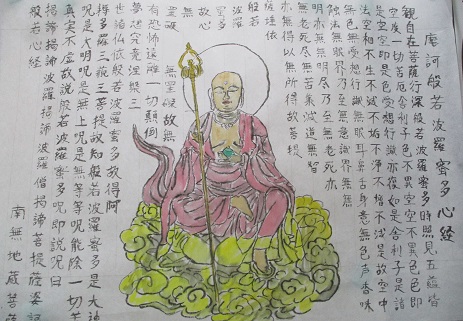 摩訶般若波羅蜜多心經
觀自在菩薩行深般若波羅蜜多時照見五蘊皆
空度一切苦厄舍利子色不異空空不異色色即
是空空即是色受想行識亦復如是舍利子是諸
法空相不生不滅不垢不淨不增不減是故空中
無色無受想行識無眼耳鼻舌身意無色声香味
觸法無眼界乃至無意識界無無
明亦無無明尽乃至無老死亦
無老死尽無苦集滅道無智
亦無得以無所得故菩提
薩埵依
般若
波羅
蜜多
故心
無
罣礙
無罣礙故無
有恐怖遠離一切顛倒
夢想究竟涅槃三
世諸仏依般若波羅蜜多故得阿
耨多羅三藐三菩提故知般若波羅蜜多是大神
呪是大明呪是無上呪是無等等呪能除一切苦
真実不虚故説般若波羅蜜多呪即説呪曰
揭諦揭諦波羅揭諦波羅僧揭諦菩提薩婆訶
般若心経
南無地蔵菩薩